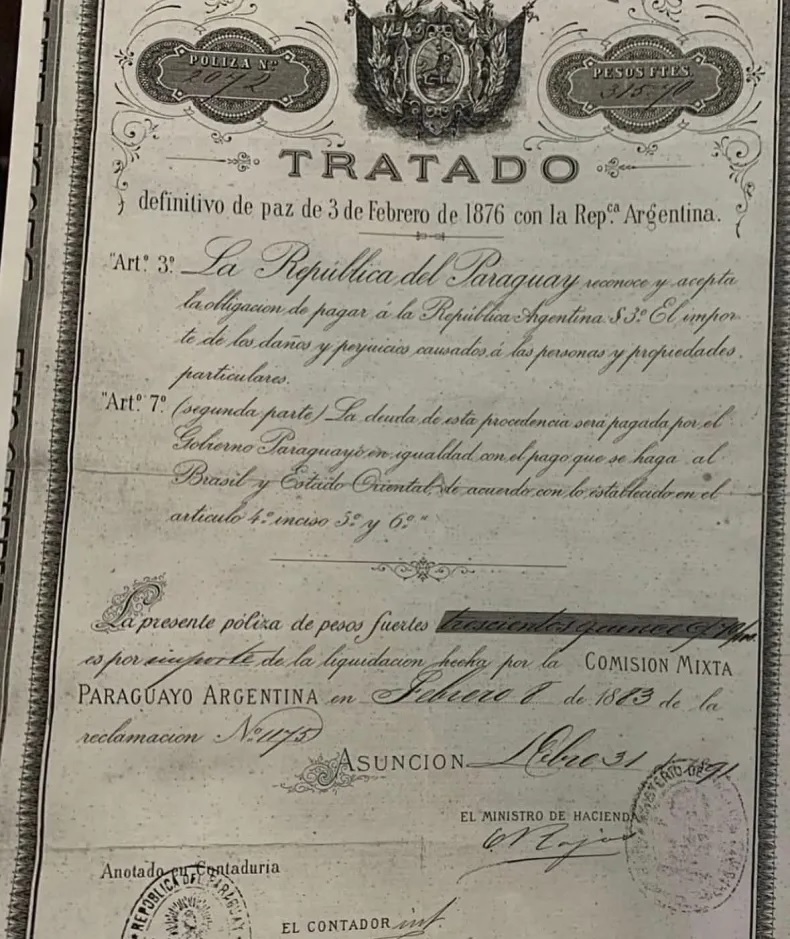 POLIZA Nº
2072
PESOS FTES.
315.70
TRATADO
definitivo de paz de 3 de Febrero de 1876 con la Rep.ca Argentina.
"Art.º 3.º La República del Paraguay reconoce y acepta
la obligacion de pagar á la República Argentina § 3.º El impor-
te de los daños y perjuicios causados á las personas y propiedades
particulares.
"Art.º 7.º (segunda parte) La deuda de esta procedencia será pagada por el
Gobierno Paraguayo en igualdad con el pago que se haga al
Brasil y Estado Oriental, de acuerdo con lo establecido en el
artículo 4.º inciso 5.º y 6.º"
La presente póliza de pesos fuertes trescientos quince 70/100
es por importe de la liquidacion hecha por la COMISION MIXTA
PARAGUAYO ARGENTINA en Febrero 8 de 1883 de la
reclamacion Nº 1175
ASUNCION Dbre 31 1891
EL MINISTRO DE HACIENDA
MINISTERIO DE
Anotado en Contaduria
REPÚBLICA DEL PARAGUAY
EL CONTADOR int.